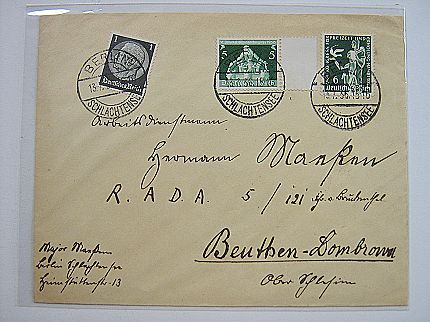 1
Deutsches Reich
5
6
BERLIN
SCHLACHTENSEE
SCHLACHTENSEE
SCHLACHTENSEE
Arbeitsdienstmann
Hermann Manken
R. A. D. A. 5 / 121
Beuthen-Dombrowa
Ober Schlesien
Major Manken
Berlin Schlachtensee